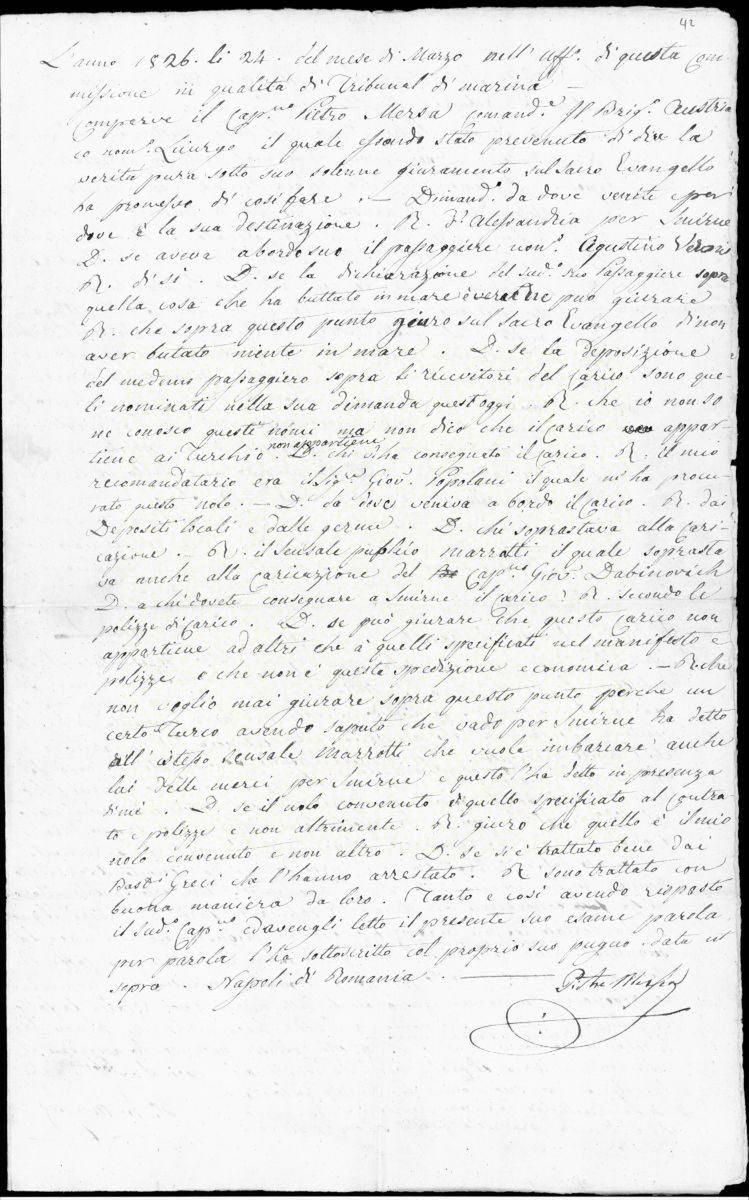 42
L'anno 1826. li 24. del mese di Marzo nell' Uff. di questa Com-
missione in qualità di Tribunal di marina —
Comparve il Cap.no Pietro Mersa Comand.e Il Brig.o Austria
co nom.o Licurgo il quale essendo stato prevenuto di dire la
verità pura sotto suo solenne giuramento sul Sacro Evangello
ha promesso di così fare . — Dimand.o da dove venite e per
dove è la sua destinazione . R. d'Alessandria per Smirne
D. se aveva abordo suo il passaggiere nom.o Agustino
R. di si . D. se la dichiarazione del sud.o suo Passaggiere sopra
quella cosa che ha buttato in mare è vera e se può giurare
R. che sopra questo punto giuro sul Sacro Evangello di non
aver butato niente in mare . D. se la deposizione
del medemo passaggiero sopra li ricevitori del Carico sono que-
li nominati nella sua dimanda quest oggi . R. che io non so
ne conosco questi nomi ma non dico che il Carico appar-
non appartiene
tiene ai Turchi . D. chi vi ha consegnato il Carico . R. il mio
recomandatario era il Sig.r Giov. Popolani il quale m'ha procu-
rato questo nolo . — D. da dove veniva a bordo il Carico . R. dai
Depositi locali e dalle germe . D. chi soprastava alla Cari-
cazione . — R. il Sensale publico Marzotti il quale soprasta
va anche alla Caricazione del Cap.no Giov. Dabinovich
D. a chi dovete consegnare a Smirne il Carico ? R. secondo le
polizze di Carico . D. se può giurare che questo Carico non
appartiene ad altri che à quelli specificati nel manifesto e
polizze e che non è questa spedizione economica . — R. che
non voglio mai giurare sopra questo punto perche un
certo Turco avendo saputo che vado per Smirne ha detto
all' istesso Sensale Marzotti che vuole imbarcare anche
lui delle merci per Smirne e questo l'ha detto in presenza
di mi . D. se il nolo convenuto è quello specificato al Contra-
to e polizze e non altrimente . R. giuro che quello è il mio
nolo convenuto e non altro . D. se si è trattato bene dai
Bast.i Greci che l'hanno arrestato . R sono trattato con
buona maniera da loro . Tanto e così avendo risposto
il Sud.o Cap.no ed avengli letto il presente suo esame parola
per parola l'ha sottoscritto col proprio suo pugno . data ut
sopra . Napoli di Romania . —